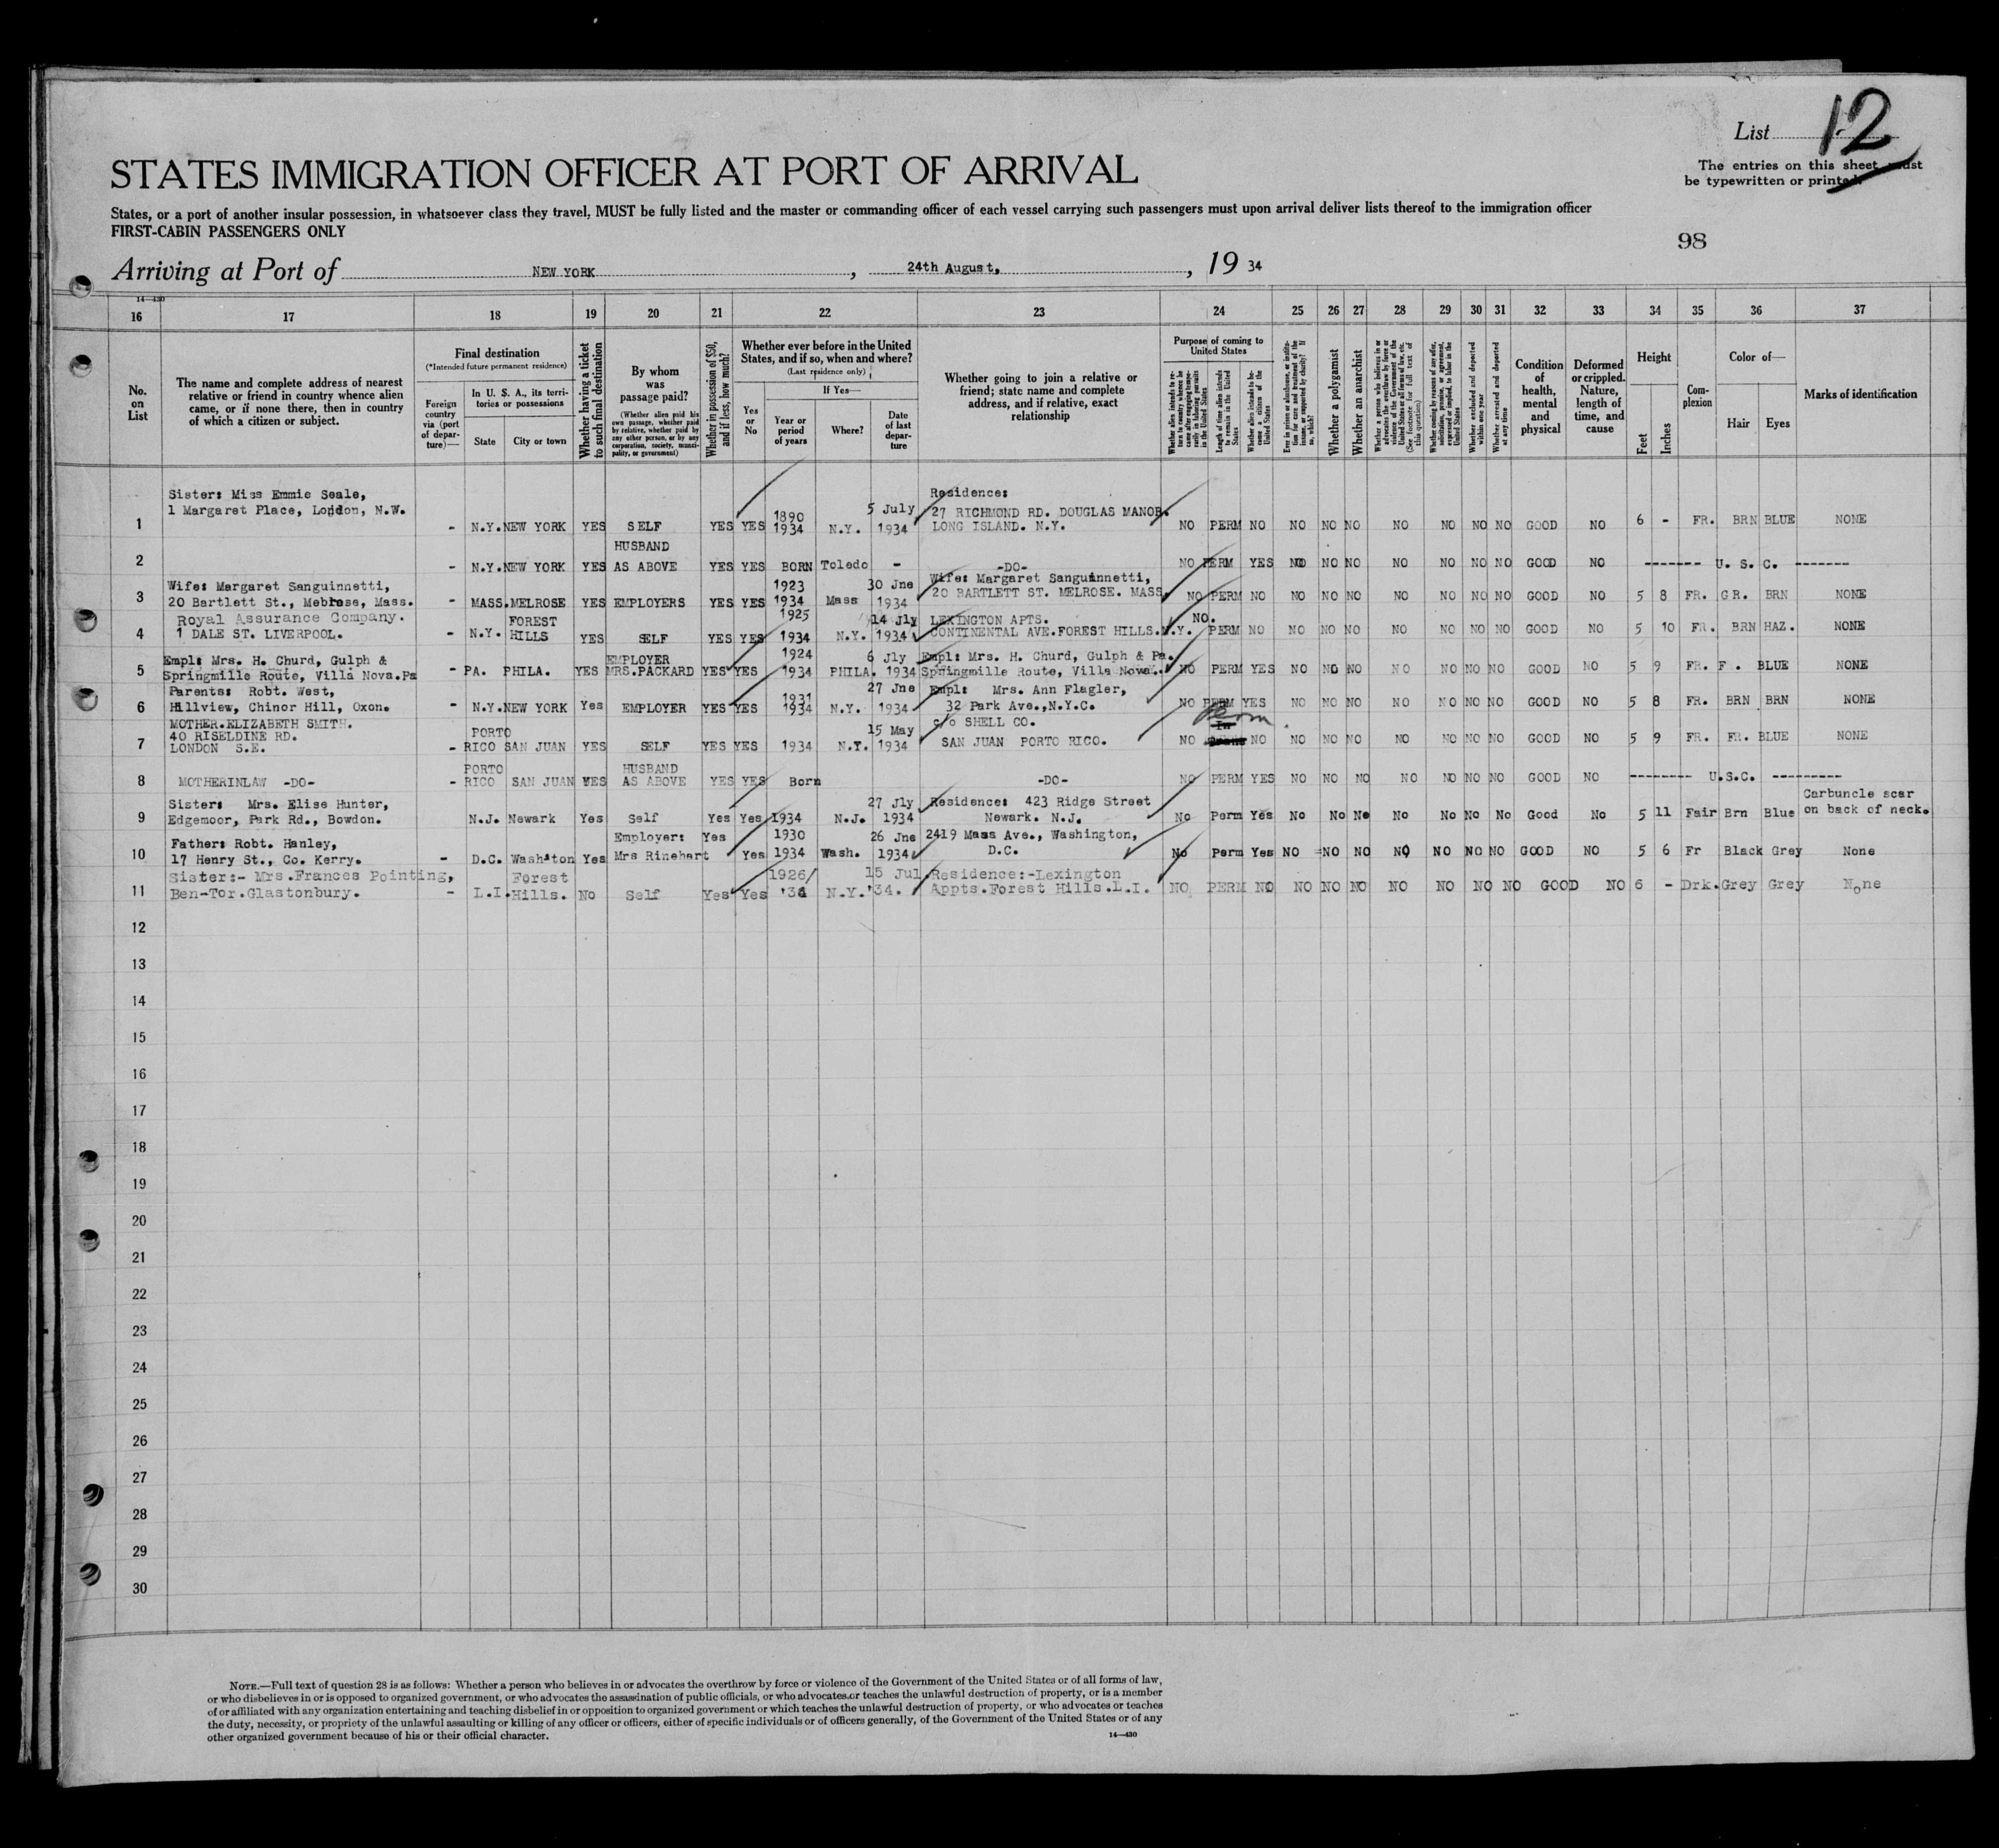 List 12
The entries on this sheet must
be typewritten or printed.
STATES IMMIGRATION OFFICER AT PORT OF ARRIVAL
States, or a port of another insular possession, in whatsoever class they travel, MUST be fully listed and the master or commanding officer of each vessel carrying such passengers must upon arrival deliver lists thereof to the immigration officer
FIRST-CABIN PASSENGERS ONLY
98
Arriving at Port of NEW YORK, 24th August, 19 34
14—430
16 17 18 19 20 21 22 23 24 25 26 27 28 29 30 31 32 33 34 35 36 37
No. on List
The name and complete address of nearest relative or friend in country whence alien came, or if none there, then in country of which a citizen or subject.
Final destination
(*Intended future permanent residence)
Foreign country via (port of departure)—
In U. S. A., its territories or possessions
State
City or town
Whether having a ticket to such final destination
By whom was passage paid?
(Whether alien paid his own passage, whether paid by relative, whether paid by any other person, or by any corporation, society, municipality, or government)
Whether in possession of $50, and if less, how much?
Whether ever before in the United States, and if so, when and where?
(Last residence only)
Yes or No
If Yes—
Year or period of years
Where?
Date of last departure
Whether going to join a relative or friend; state name and complete address, and if relative, exact relationship
Purpose of coming to United States
Whether alien intends to return to country whence he came after engaging temporarily in laboring pursuits in the United States
Length of time alien intends to remain in the United States
Whether alien intends to become a citizen of the United States
Ever in prison or almshouse, or institution for care and treatment of the insane, or supported by charity? If so, which?
Whether a polygamist
Whether an anarchist
Whether a person who believes in or advocates the overthrow by force or violence of the Government of the United States or all forms of law, etc. (See footnote for full text of this question)
Whether coming by reasons of any offer, solicitation, promise, or agreement, expressed or implied, to labor in the United States
Whether excluded and deported within one year
Whether arrested and deported at any time
Condition of health, mental and physical
Deformed or crippled. Nature, length of time, and cause
Height
Feet
Inches
Complexion
Color of—
Hair
Eyes
Marks of identification
Sister: Miss Emmie Seale, 5 July Residence:
1 Margaret Place, London, N.W. 1890 27 RICHMOND RD. DOUGLAS MANOR.
1 - N.Y. NEW YORK YES SELF YES YES 1934 N.Y. 1934 LONG ISLAND. N.Y. NO PERM NO NO NO NO NO NO NO NO GOOD NO 6 - FR. BRN BLUE NONE
HUSBAND
2 - N.Y. NEW YORK YES AS ABOVE YES YES BORN Toledo - -DO- NO PERM YES NO NO NO NO NO NO NO GOOD NO ------- U. S. C. -------
Wife: Margaret Sanguinnetti, 1923 30 Jne Wife: Margaret Sanguinnetti,
3 20 Bartlett St., Melrose, Mass. - MASS. MELROSE YES EMPLOYERS YES YES 1934 Mass 1934 20 BARTLETT ST. MELROSE. MASS. NO PERM NO NO NO NO NO NO NO NO GOOD NO 5 8 FR. GR. BRN NONE
Royal Assurance Company. FOREST 1925 14 Jly LEXINGTON APTS. NO.
4 1 DALE ST. LIVERPOOL. - N.Y. HILLS YES SELF YES YES 1934 N.Y. 1934 CONTINENTAL AVE. FOREST HILLS. N.Y. PERM NO NO NO NO NO NO NO NO GOOD NO 5 10 FR. BRN HAZ. NONE
Empl: Mrs. H. Churd, Gulph & EMPLOYER 1924 6 Jly Empl: Mrs. H. Churd, Gulph & Pa.
5 Springmille Route, Villa Nova.Pa - PA. PHILA. YES MRS.PACKARD YES YES 1934 PHILA. 1934 Springmille Route, Villa Nova. NO PERM YES NO NO NO NO NO NO NO GOOD NO 5 9 FR. F. BLUE NONE
Parents: Robt. West, 1931 27 Jne Empl: Mrs. Ann Flagler,
6 Hillview, Chinor Hill, Oxon. - N.Y. NEW YORK Yes EMPLOYER YES YES 1934 N.Y. 1934 32 Park Ave.,N.Y.C. NO PERM YES NO NO NO NO NO NO NO GOOD NO 5 8 FR. BRN BRN NONE
MOTHER.ELIZABETH SMITH. c/o SHELL CO. Perm.
40 RISELDINE RD. PORTO 15 May In
7 LONDON S.E. - RICO SAN JUAN YES SELF YES YES 1934 N.Y. 1934 SAN JUAN PORTO RICO. NO NO NO NO NO NO NO NO NO GOOD NO 5 9 FR. FR. BLUE NONE
PORTO HUSBAND
8 MOTHERINLAW -DO- - RICO SAN JUAN YES AS ABOVE YES YES Born -DO- NO PERM YES NO NO NO NO NO NO NO GOOD NO -------- U.S.C. ---------
Sister: Mrs. Elise Hunter, 27 Jly Residence: 423 Ridge Street Carbuncle scar
9 Edgemoor, Park Rd., Bowdon. N.J. Newark Yes Self Yes Yes 1934 N.J. 1934 Newark. N.J. No Perm Yes No No No No No No No Good No 5 11 Fair Brn Blue on back of neck.
Father: Robt. Hanley, Employer: Yes 1930 26 Jne 2419 Mass Ave., Washington,
10 17 Henry St., Co. Kerry. - D.C. Washton Yes Mrs Rinehart Yes 1934 Wash. 1934 D.C. No Perm Yes NO NO NO NO NO NO NO GOOD NO 5 6 Fr Black Grey None
Sister:- Mrs.Frances Pointing, Forest 1926/ 15 Jul. Residence:-Lexington
11 Ben-Tor.Glastonbury. - L.I. Hills. No Self Yes Yes '34 N.Y. '34. Appts.Forest Hills.L.I. NO PERM NO NO NO NO NO NO NO NO GOOD NO 6 - Drk. Grey Grey None
12
13
14
15
16
17
18
19
20
21
22
23
24
25
26
27
28
29
30
NOTE.—Full text of question 28 is as follows: Whether a person who believes in or advocates the overthrow by force or violence of the Government of the United States or of all forms of law,
or who disbelieves in or is opposed to organized government, or who advocates the assassination of public officials, or who advocates or teaches the unlawful destruction of property, or is a member
of or affiliated with any organization entertaining and teaching disbelief in or opposition to organized government or which teaches the unlawful destruction of property, or who advocates or teaches
the duty, necessity, or propriety of the unlawful assaulting or killing of any officer or officers, either of specific individuals or of officers generally, of the Government of the United States or of any
other organized government because of his or their official character. 14—430